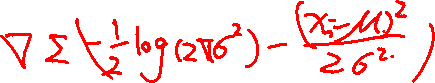 ∇ Σ (-\frac{1}{2} log(2πσ²) - \frac{(x_i-μ)²}{2σ²})